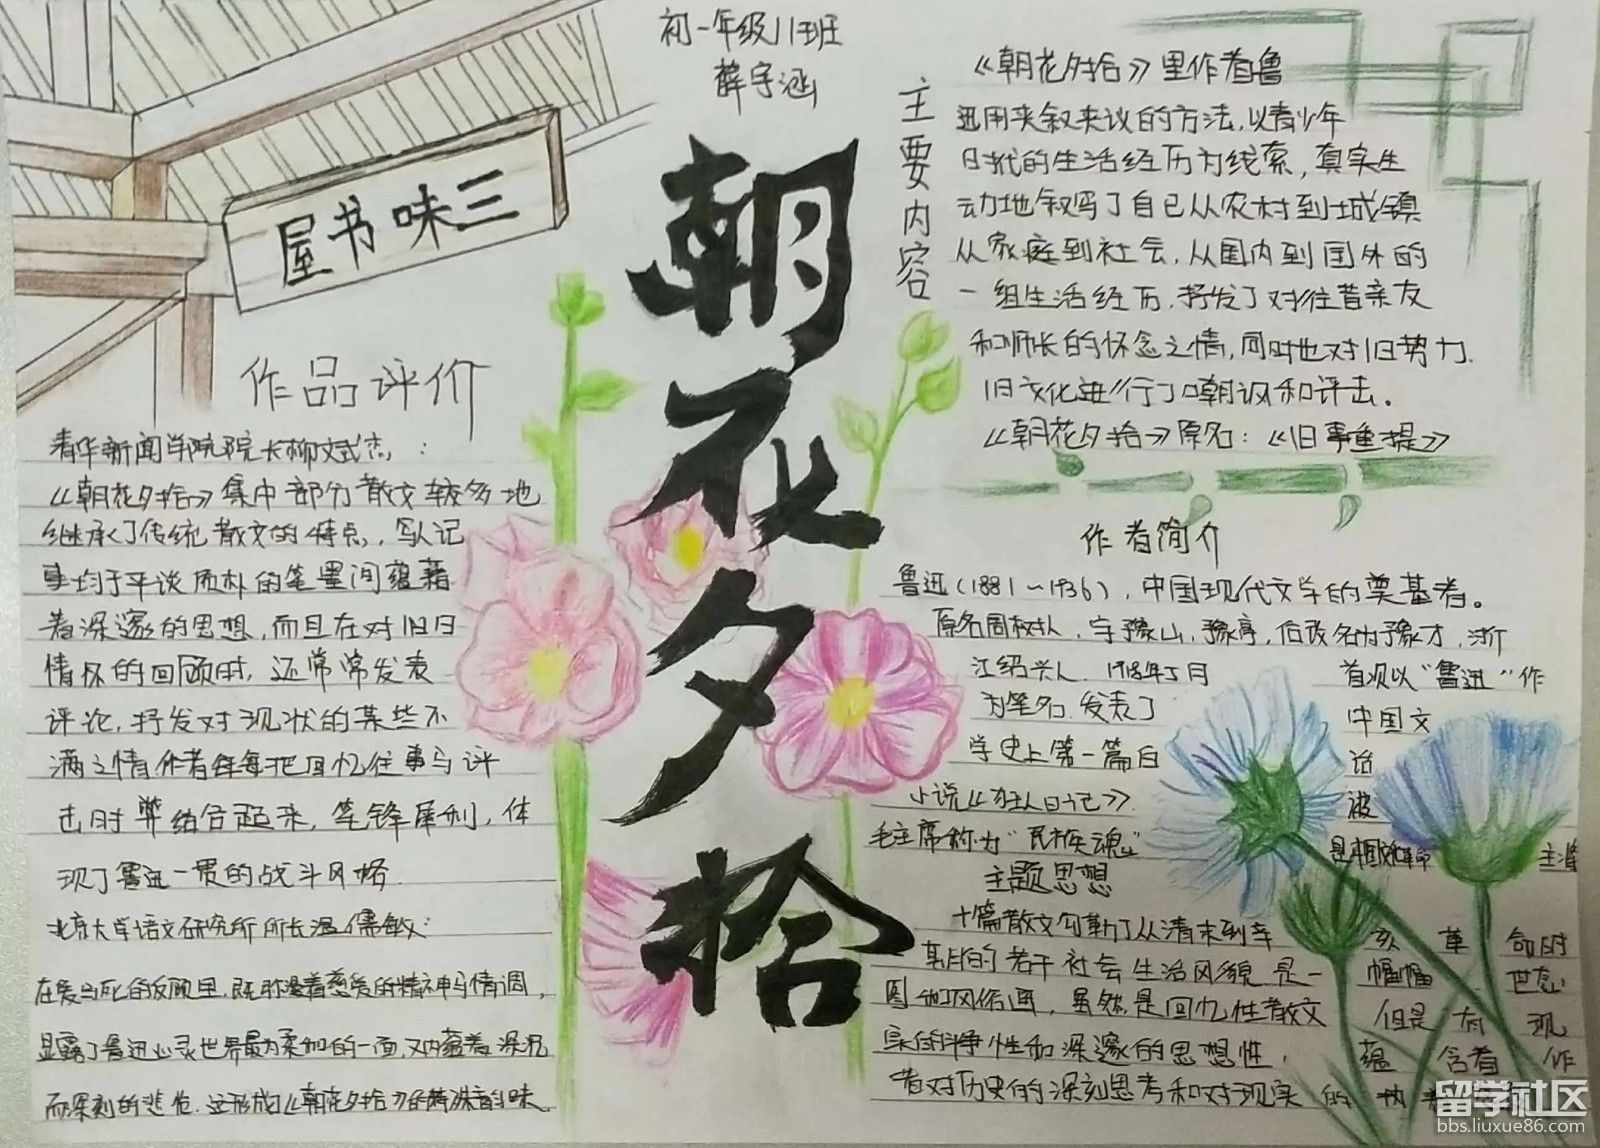 初一年级11班
薛宇涵
屋书味三
朝花夕拾
主要内容
《朝花夕拾》里作者鲁
迅用夹叙夹议的方法,以青少年
日我的生活经历为线索,真实生
动地叙写了自己从农村到城镇
从家庭到社会,从国内到国外的
一组生活经历,抒发了对往昔亲友
和师长的怀念之情,同时也对旧势力.
旧文化进行了嘲讽和评击。
《朝花夕拾》原名:《旧事重提》
作品评价
清华新闻学院院长柳文:
《朝花夕拾》集中部分散文较多地
继承了传统散文的特点,写人记
事均于平谈质朴的笔墨间蕴藉
着深邃的思想,而且在对旧日
情怀的回顾时,还常常发表
评论,抒发对现状的某些不
满之情作者每每把回忆往事与评
击时弊结合起来,笔锋犀利,体
现了鲁迅一贯的战斗风格.
北京大学语文研究所所长温儒敏:
在爱与死的反顾里,既弥漫着慈爱的精神与情调,
显露了鲁迅心灵世界最为柔和的一面,又内蕴着深沉
而深刻的悲怆,这形成《朝花夕拾》味.
作者简介
鲁迅(1881~1936),中国现代文学的奠基者。
原名周树人,字豫山,豫亭,后改名为豫才,浙
江绍兴人.1918年5月 首次以“鲁迅”作
为笔名.发表了 中国文
学史上第一篇白 话
小说《狂人日记》. 被
毛主席称为“民族魂” 是中国文化革命 主
主题思想
十篇散文勾勒了从清末到辛 亥 革 命时
期的若干社会生活风貌是一 幅幅 世态
图和风俗画,虽然是回忆性散文 但是 有 现
实的斗争性和深邃的思想性, 蕴 含着 作
者对历史的深刻思考和对现实 的 执
留学社区
bbs.liuxue86.com